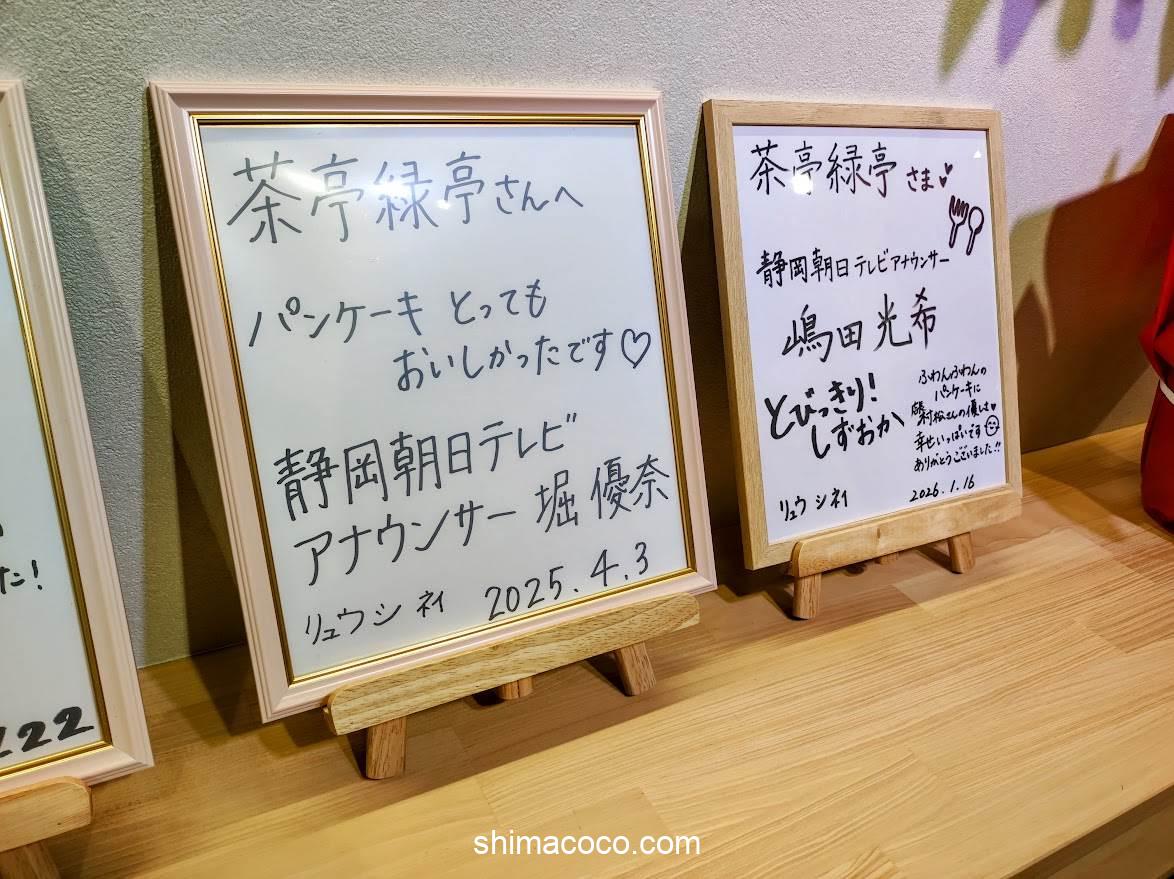 た!
222
茶亭緑亭さんへ
パンケーキ とっても
おいしかったです♡
静岡朝日テレビ
アナウンサー 堀 優奈
リュウ シネイ 2025.4.3
茶亭緑亭さま
静岡朝日テレビアナウンサー
嶋田光希
とびっきり!
しずおか
ふわんふわんの
パンケーキに
村松さんの優しさ
幸せいっぱいです
ありがとうございました!!
リュウ シネイ
2026.1.16
shimacoco.com